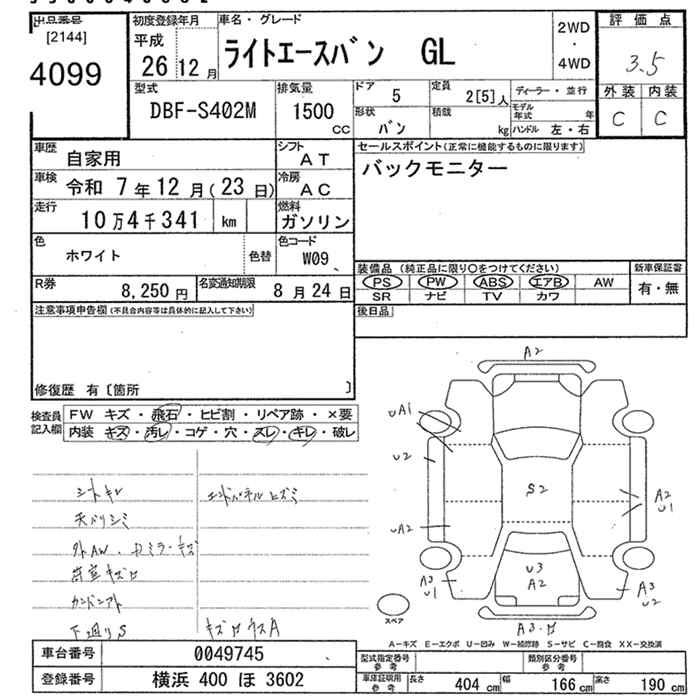 出品番号
[2144]
4099
初度登録年月
平成
26 12 月
車名・グレード
ライトエースバン GL
2WD
・
4WD
評価点
3.5
外装 内装
C C
型式
DBF-S402M
排気量
1500
CC
ドア
5
定員
2[5]人
形状
バン
積載
kg
ディーラー・並行
モデル年式 年
ハンドル 左・右
車歴
自家用
シフト
AT
車検
令和 7年12月(23日)
冷房
AC
走行
10万4千341 km
燃料
ガソリン
セールスポイント(正常に機能するものに限ります)
バックモニター
色
ホワイト
色替
色コード
W09
R券
8,250円
名変通知期限
8月24日
装備品 (純正品に限り〇をつけてください)
PS PW ABS エアB AW
SR ナビ TV カワ
新車保証書
有・無
注意事項申告欄(不具合内容等は具体的に記入して下さい)
後日品
修復歴 有〔箇所 〕
検査員記入欄
FW キズ・飛石・ヒビ割・リペア跡・×要
内装 キズ・汚レ・コゲ・穴・スレ・キレ・破レ
シートキレ
エンドパネルヒズミ
天バリシミ
外AW、ドミラーキズ
荷室キズ
下廻りS
A2
UA1
U2
S2
A2
U1
UA2
U3
A2
A3
U1
A3
U2
スペア
A-キズ E-エクボ U-凹み W-補修跡 S-サビ C-腐食 XX-交換済
車台番号
0049745
登録番号
横浜 400 ほ 3602
型式指定番号
参考
類別区分番号
参考
車庫証明用
参考
長さ 404 cm 幅 166 cm 高さ 190 cm